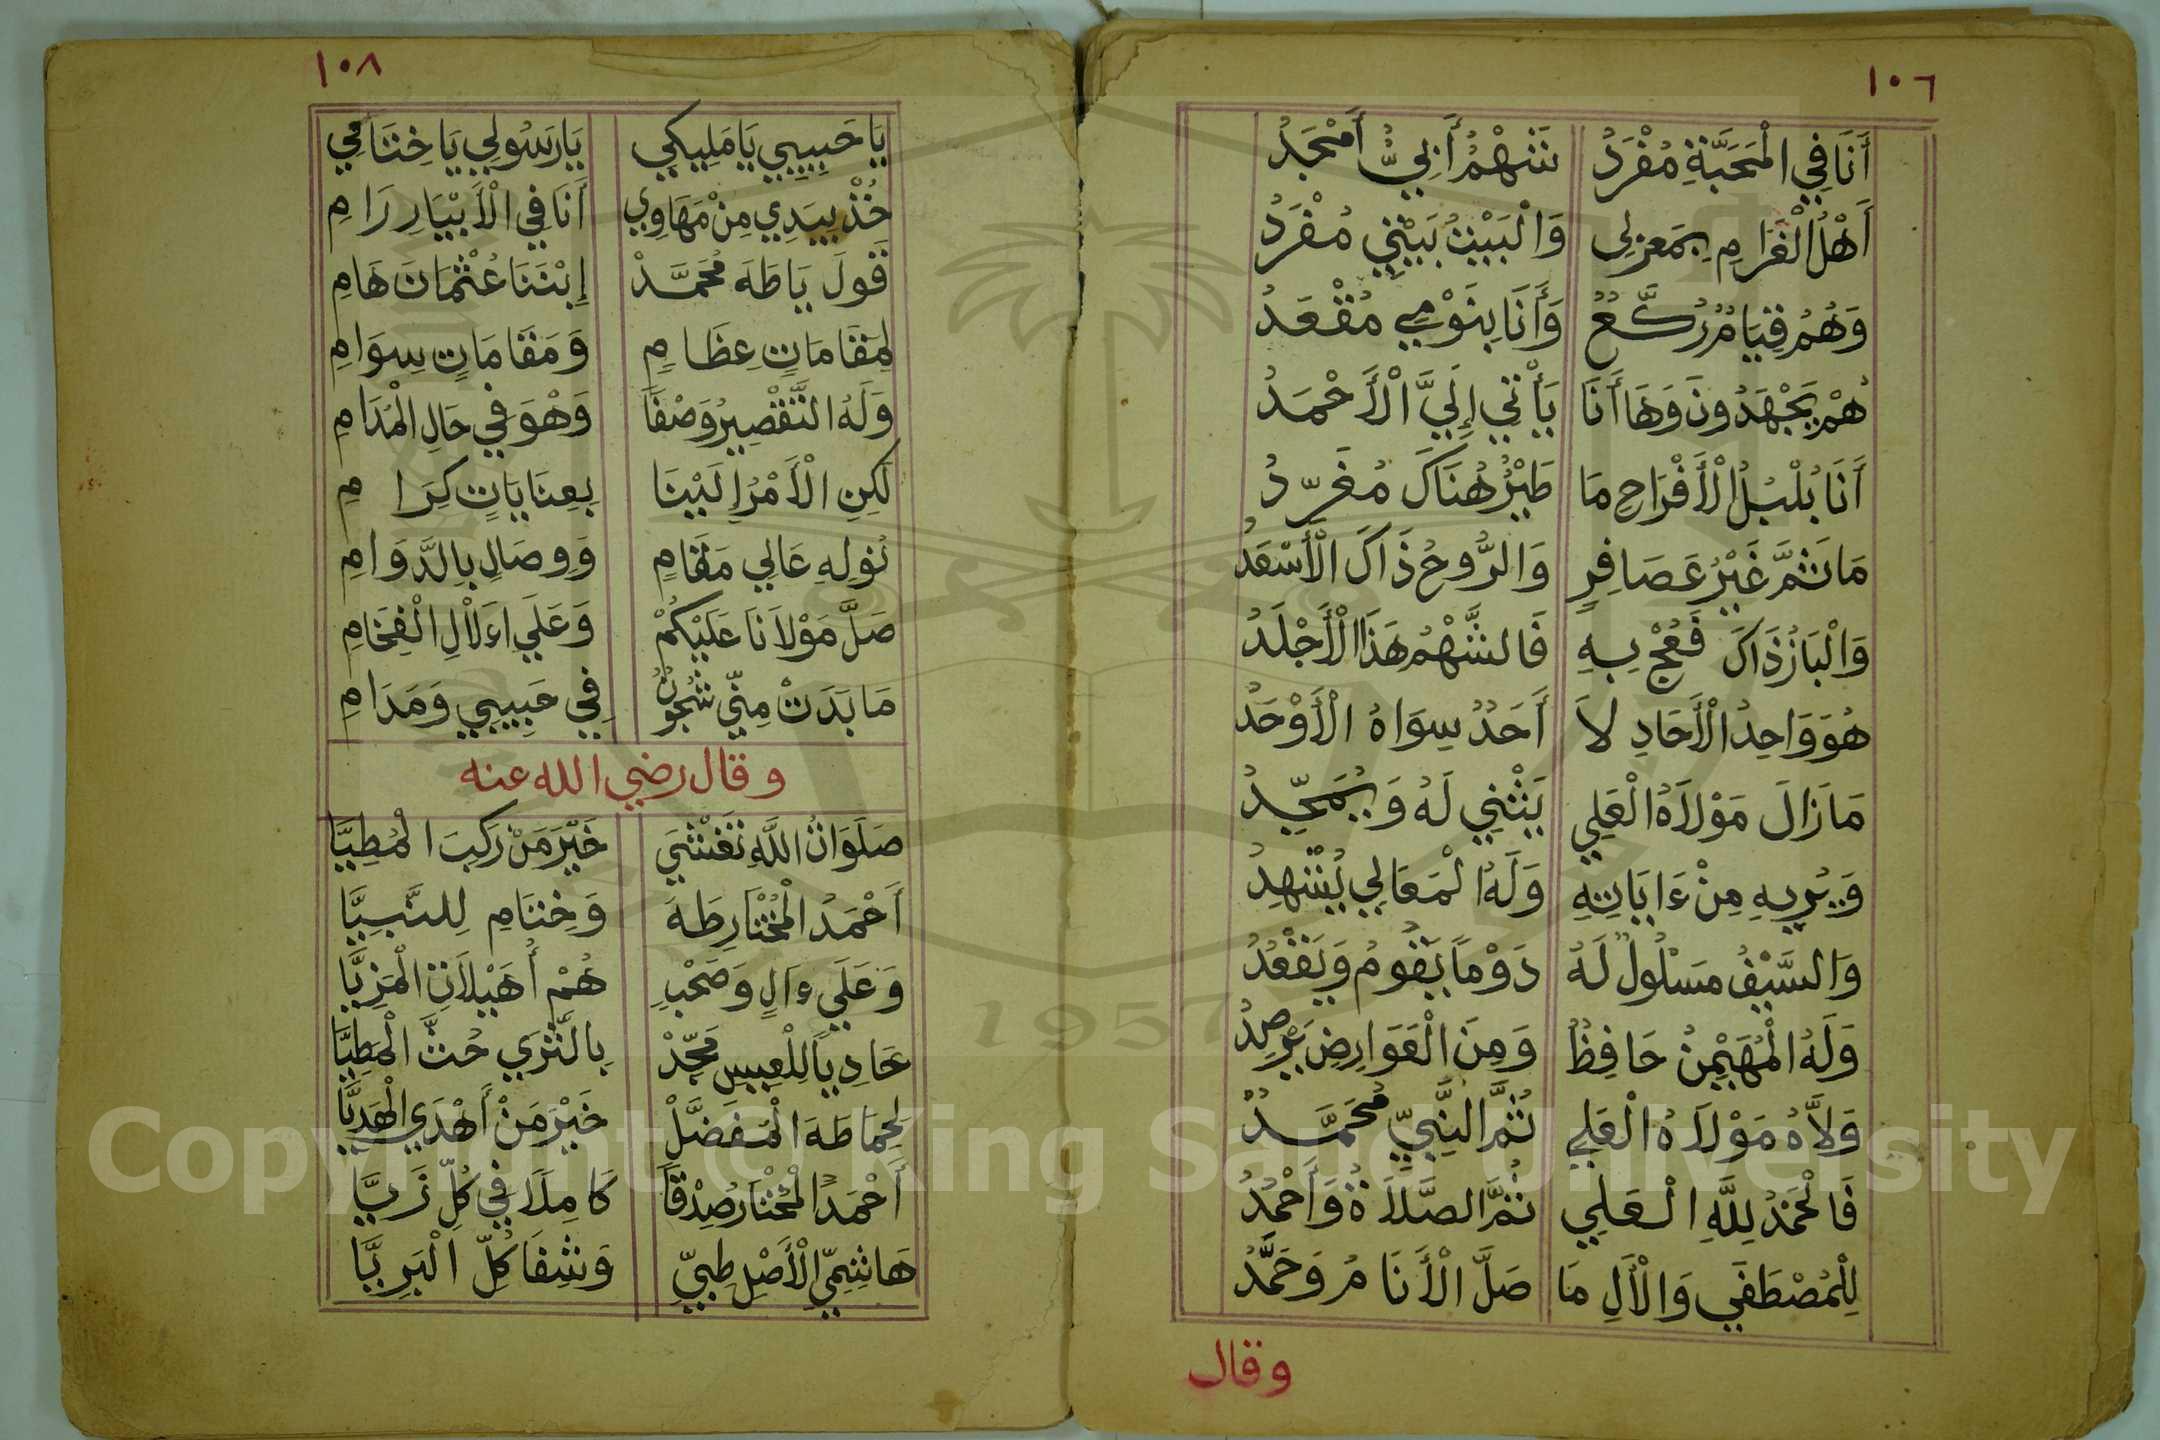 ١٠٦
أَنَا فِي الْمَحَبَّةِ مُفْرَدُ شَهْمٌ أَبِيٌّ أَمْجَدُ
أَهْلُ الْغَرَامِ بِمَعزِلِي وَالْبَيْتُ بَيْتِي مُفْرَدُ
وَهُمُ قِيَامٌ رُكَّعٌ وَأَنَا بِنَوْمِي مُقْعَدُ
هُمْ يَجْهَدُونَ وَهَا أَنَا يَأْتِي إِلَيَّ الْأَحْمَدُ
أَنَا بُلْبُلُ الْأَفْرَاحِ مَا طَيْرٌ هُنَاكَ مُغَرِّدُ
مَا ثَمَّ غَيْرُ عَصَافِرٍ وَالرُّوحُ ذَاكَ الْأَسْعَدُ
وَالْبَازُ ذَاكَ فَعُجْ بِهِ فَالشَّهْمُ هَذَا الْأَجْلَدُ
هُوَ وَاحِدُ الْأَحَادِ لاَ أَحَدٌ سِوَاهُ الْأَوْحَدُ
مَا زَالَ مَوْلاَهُ الْعَلِي يَثْنِي لَهُ وَيُمَجِّدُ
وَيُرِيهِ مِنْ ءَايَاتِهِ وَلَهُ الْمَعَالِي يُشْهِدُ
وَالسَّيْفُ مَسْلُولٌ لَهُ دَوْمًا يَقُومُ وَيَقْعُدُ
وَلَهُ الْمُهَيْمِنُ حَافِظٌ وَمِنَ الْعَوَارِضِ يَرْصِدُ
وَلاَّهُ مَوْلاَهُ الْعَلِي ثُمَّ النَّبِيِّ مُحَمَّدُ
فَالْحَمْدُ لِلَّهِ الْعَلِي ثُمَّ الصَّلاَةُ وَأَحْمُدُ
لِلْمُصْطَفَى وَالْأَلِ مَا صَلَّ الْأَنَامُ وَحَمَّدُ
وقال
١٠٨
يَا حَبِيبِي يَا مَلِيكِي يَا رَسُولِي يَا خِتَامِي
خُذْ بِيَدِي مِنْ مَهَاوِي أَنَا فِي الْأَبْيَارِ رَامِ
قَولَ يَا طَهَ مُحَمَّدْ إِبْنَنَا عُثْمَانَ هَامِ
لِمَقَامَاتٍ عِظَامٍ وَمَقَامَاتٍ سِوَامِ
وَلَهُ التَّقْصِيرُ وَصْفًا وَهْوَ فِي حَالِ الْمُدَامِ
لَكِنِ الْأَمْرُ إِلَيْنَا بِعِنَايَاتٍ كِرَامِ
نُولِهِ عَالِي مَقَامٍ وَوِصَالِ بِالدَّوَامِ
صَلَّ مَوْلاَنَا عَلَيْكُمْ وَعَلَي اءَلاْلِ الْفِخَامِ
مَا بَدَتْ مِنِّي شُجُونٌ فِي حَبِيبِي وَمَدَامِ
وقال رضي الله عنه
صَلَوَاتُ اللَّهِ تَغْشَي خَيْرَ مَنْ رَكِبَ الْمُطِيَّا
أَحْمَدُ الْمُخْتَارِ طَهَ وَخِتَامِ لِلنَّبِيَّا
وَعَلَي ءَالٍ وَصَحْبِ هُمْ أُهَيْلاَتِ الْمَزِيَّا
حَادِياً لِلْعِيسِ مَجِّدْ بِالَّثَرَي حُثَّ الْمَطِيَّا
لِحِمَا طَهَ الْمُفَضَّلْ خَيْرَ مَنْ أَهْدَي الْهَدِيَّا
أَحْمَدًا الْمُخْتَارَ صِدْقًا كَامِلًا فِي كُلِّ زَيَّا
هَاشِمِيِّ الْأَصْلِ طِبِّي وَشِفَا كُلِّ الْبَرِيَّا
1957
Copyright © King Saud University